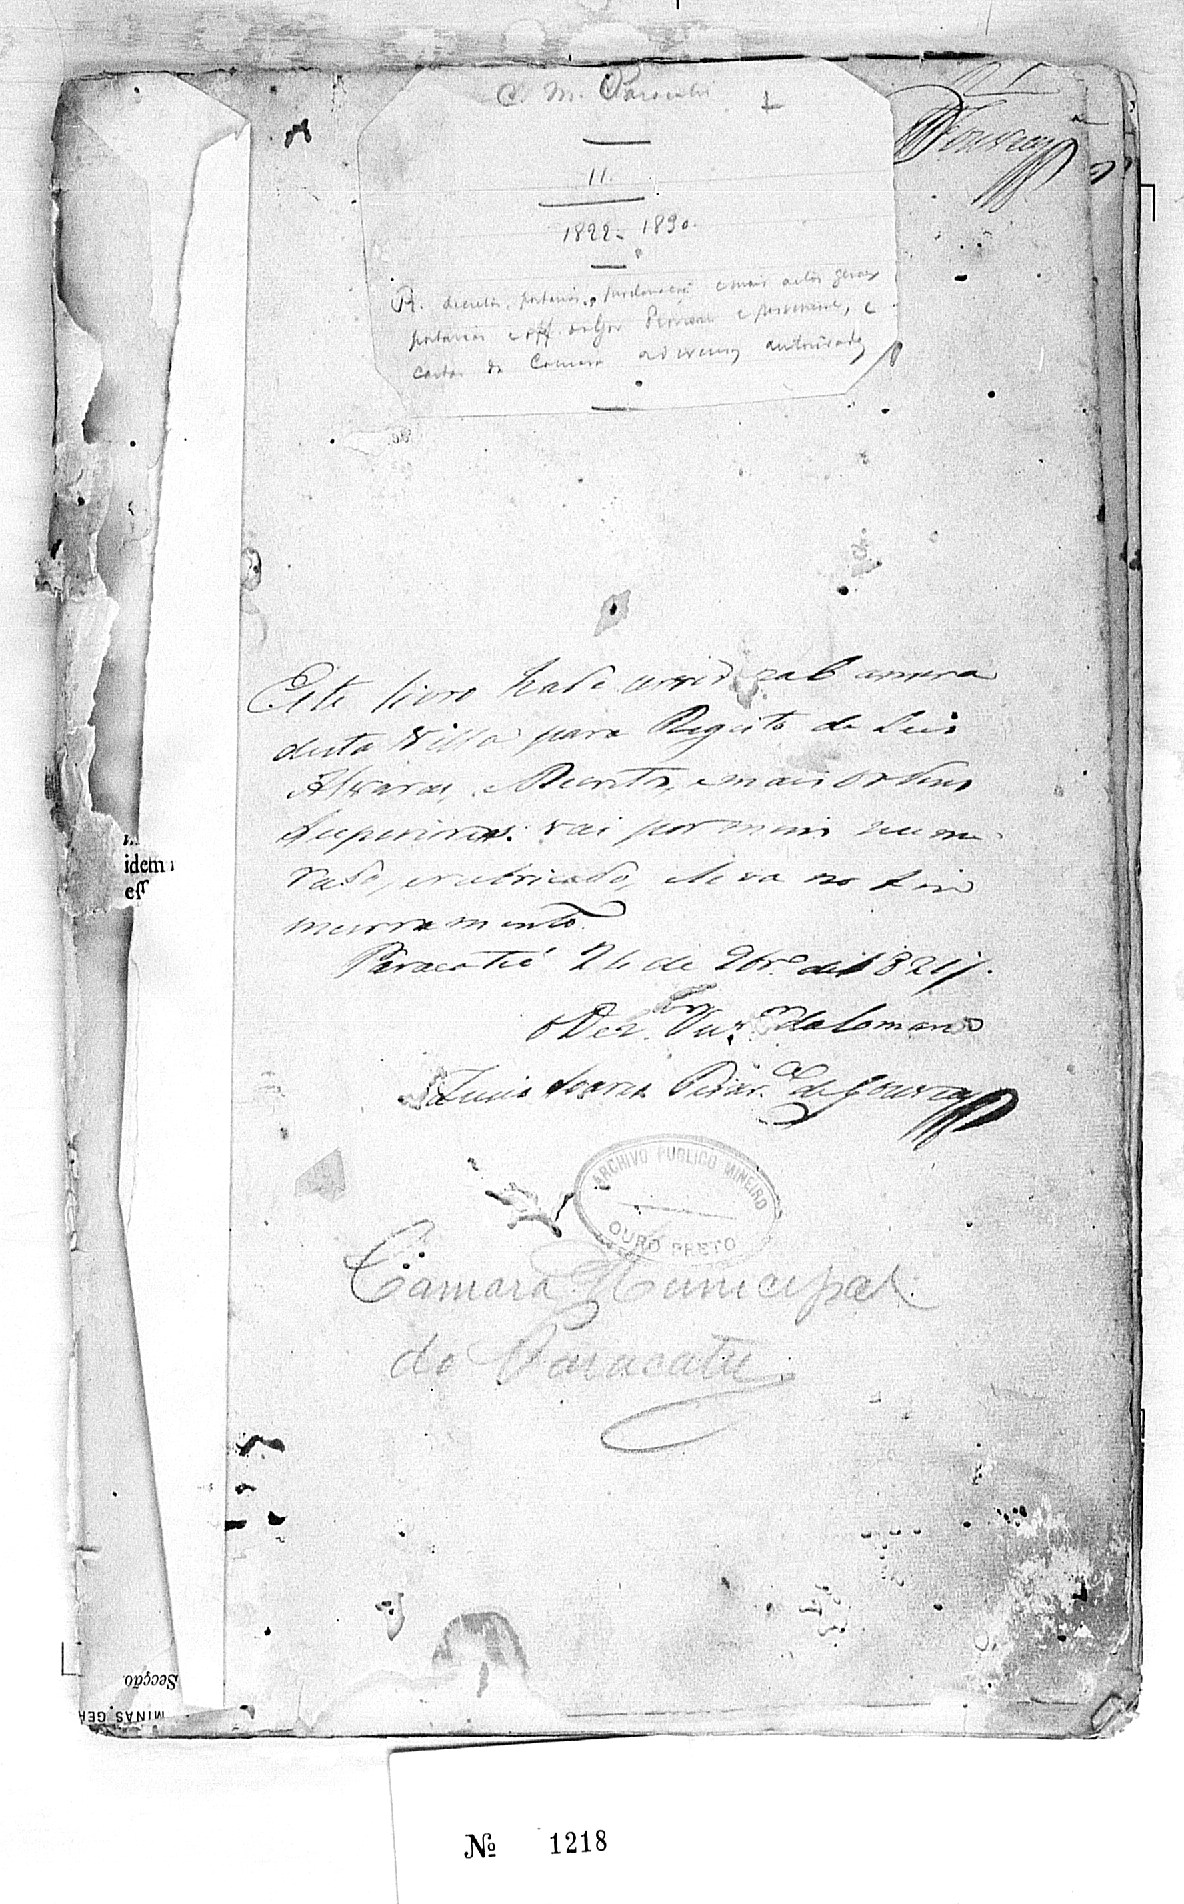 C. M. Paracatú
11
1822 - 1830.
R. decretos, portarias, e mais actos geraes
portarias e off. do Gov.
cartas da Camara a diversas autoridades
Gouvea
Este livro hade servir na Camara
desta Villa para Registo de Leis
Alvaras, Decretos, e mais Ordens
Superiores: vai por mim nume
rado, e rubricado, e leva no fim
incerramento.
Paracatú 26 de 9br.º de 1821
O Dez.or Ouv.or da Comarca
Luis Soares de Gouvea
ARCHIVO PUBLICO MINEIRO
OURO PRETO
Camara Municipal
de Paracatu.
idem
eſſ
Secção
MINAS GE
№ 1218